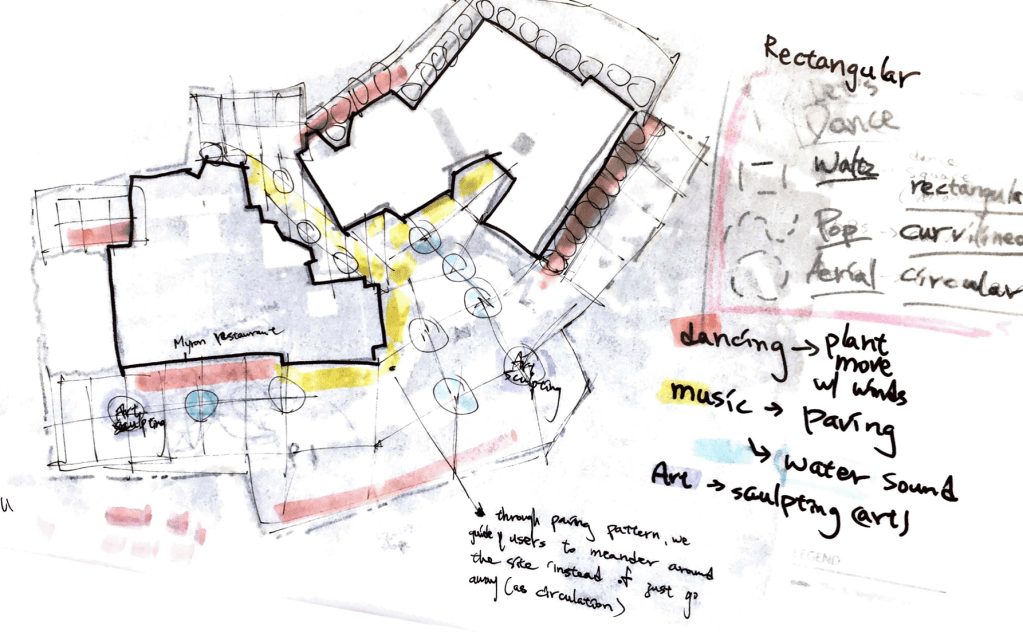 Rectangular
Let's
Dance
Waltz
rectangula
Pop
curvilinea
Aerial circular
dancing → plant
move
w/ winds
music → paving
↳ water sound
Art → sculpting (arts)
Myron restaurant
Art
sculpting
Art
sculpting
through paving pattern, we
guide users to meander around
the site instead of just go
away (as circulation)
LEGEND